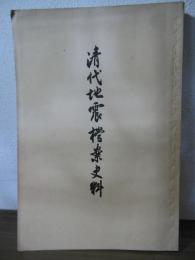 清代地震档案史料